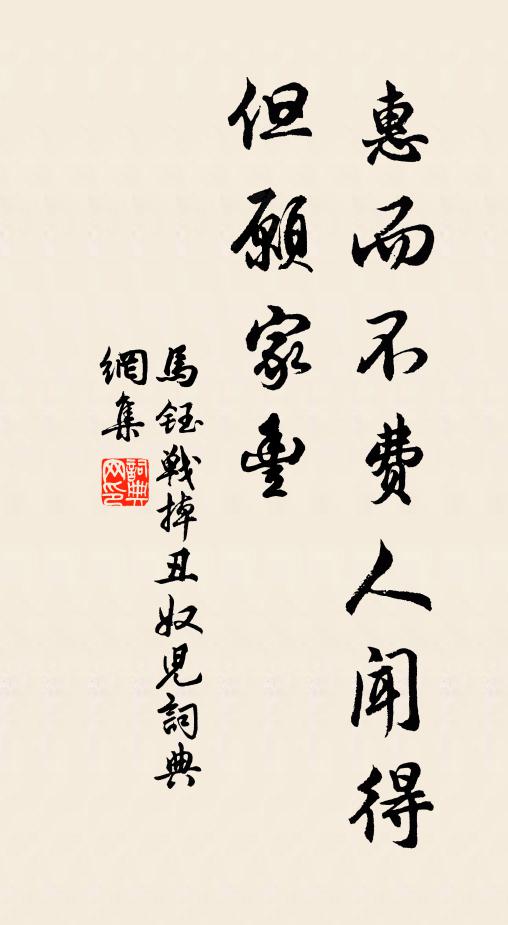 惠而不费人闻得
但愿家丰
馬鈺戰掉丑奴兒詞典
網集
詞典
网印